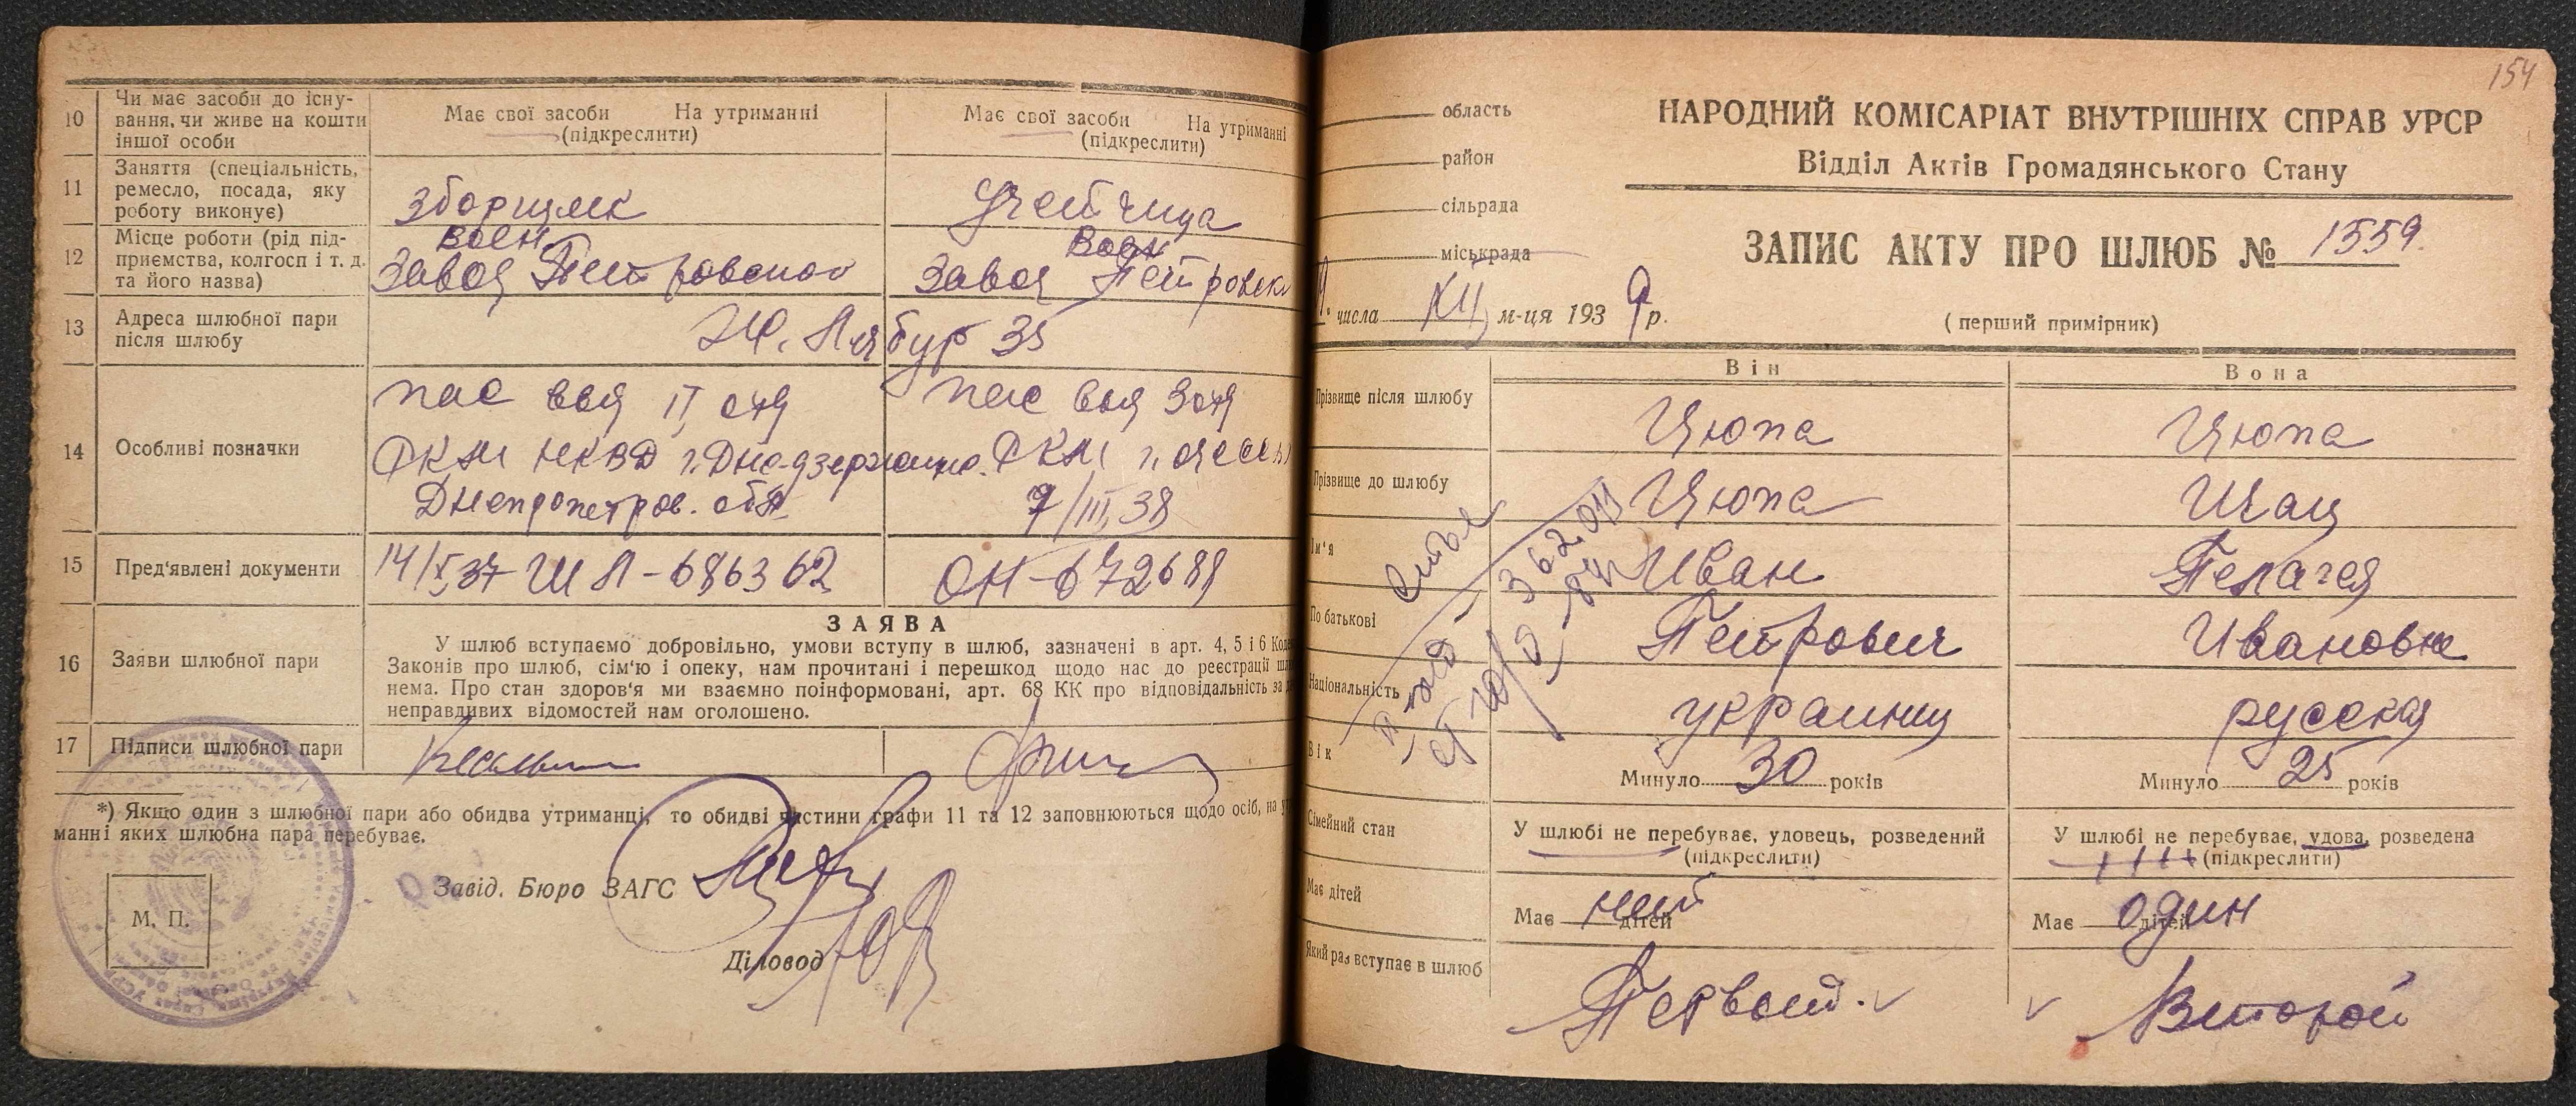 10 Чи має засоби до існу-
вання, чи живе на кошти
іншої особи
Має свої засоби На утриманні
(підкреслити)
Має свої засоби На утриманні
(підкреслити)
11 Заняття (спеціальність,
ремесло, посада, яку
роботу виконує)
зборщик
учетчица
12 Місце роботи (рід під-
приємства, колгосп і т. д.
та його назва)
Воен.
завод Петровского
Воен
завод Петровск
13 Адреса шлюбної пари
після шлюбу
35
14 Особливі позначки
пас выд II отд
РКМ НКВД г. Дне-дзержинс.
Днепропетров. обл.
пас выд 3 отд
РКМ г. Одессы
7/III 38
15 Пред'явлені документи
14/X 37 ША-686362
ОН-672688
ЗАЯВА
16 Заяви шлюбної пари
У шлюб вступаємо добровільно, умови вступу в шлюб, зазначені в арт. 4, 5 і 6
Законів про шлюб, сім'ю і опеку, нам прочитані і перешкод щодо нас до реєстрації
нема. Про стан здоров'я ми взаємно поінформовані, арт. 68 КК про відповідальність за
неправдивих відомостей нам оголошено.
17 Підписи шлюбної пари
*) Якщо один з шлюбної пари або обидва утриманці, то обидві частини графи 11 та 12 заповнюються щодо осіб, на
манні яких шлюбна пара перебуває.
Завід. Бюро ЗАГС
М. П.
Діловод
154
область
район
сільрада
міськрада
НАРОДНИЙ КОМІСАРІАТ ВНУТРІШНІХ СПРАВ УРСР
Відділ Актів Громадянського Стану
ЗАПИС АКТУ ПРО ШЛЮБ № 1559.
числа XII м-ця 1939 р.
(перший примірник)
Він
Вона
Прізвище після шлюбу
Цюпа
Цюпа
Прізвище до шлюбу
Цюпа
Шац
Ім'я
Иван
Пелагея
По батькові
Петрович
Ивановна
Національність
украинец
русская
Вік
Минуло 30 років
Минуло 25 років
Сімейний стан
У шлюбі не перебуває, удовець, розведений
(підкреслити)
У шлюбі не перебуває, удова, розведена
(підкреслити)
Має дітей
Має нет дітей
Має один дітей
Який раз вступає в шлюб
Первый.
Второй